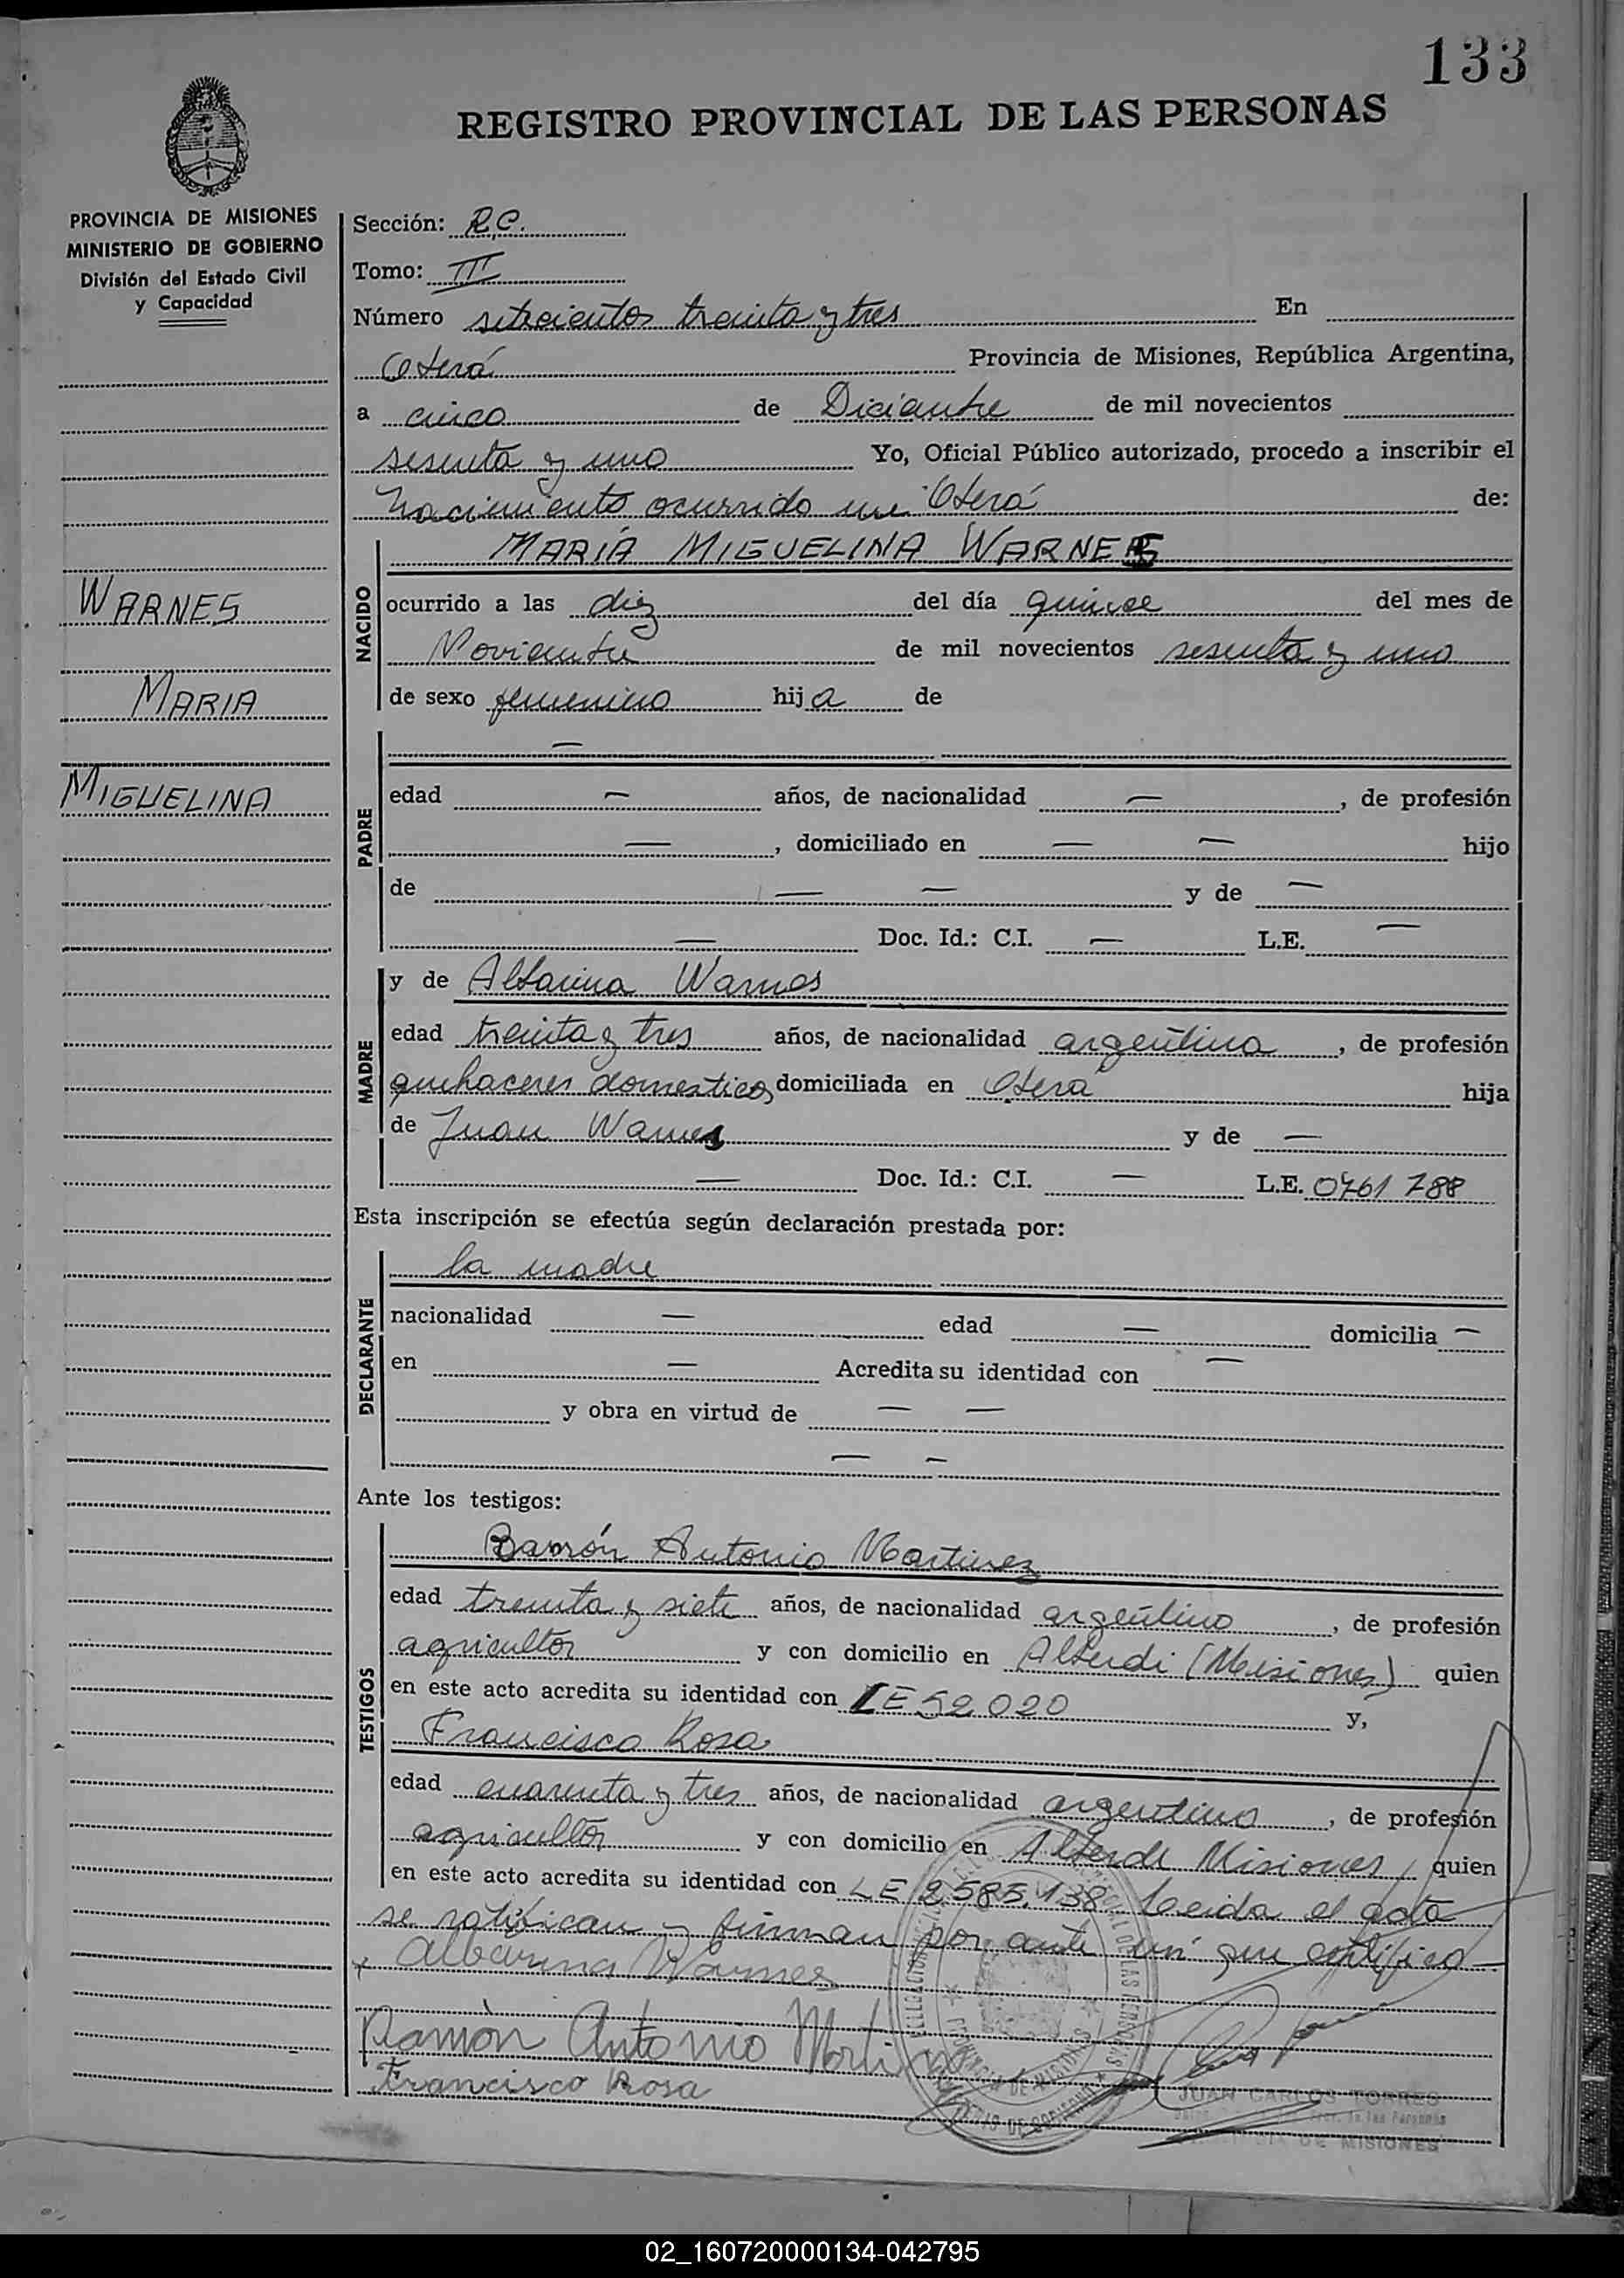 133
REGISTRO PROVINCIAL DE LAS PERSONAS
PROVINCIA DE MISIONES
MINISTERIO DE GOBIERNO
División del Estado Civil
y Capacidad
WARNES
MARIA
MIGUELINA
Sección: R.C.
Tomo: III
Número setecientos treinta y tres En
Oberá Provincia de Misiones, República Argentina,
a cinco de Diciembre de mil novecientos
sesenta y uno Yo, Oficial Público autorizado, procedo a inscribir el
nacimiento ocurrido en Oberá de:
NACIDO
MARIA MIGUELINA WARNES
ocurrido a las diez del día quince del mes de
Noviembre de mil novecientos sesenta y uno
de sexo femenino hija de
PADRE
—
edad — años, de nacionalidad —, de profesión
—, domiciliado en — — hijo
de — — y de —
— Doc. Id.: C.I. — L.E. —
MADRE
y de Albarina Warnes
edad treinta y tres años, de nacionalidad argentina, de profesión
quehaceres domesticos domiciliada en Oberá hija
de Juan Warnes y de —
— Doc. Id.: C.I. — L.E. 0761 788
Esta inscripción se efectúa según declaración prestada por:
DECLARANTE
la madre
nacionalidad — edad — domicilia —
en — Acredita su identidad con —
y obra en virtud de — —
— —
Ante los testigos:
TESTIGOS
Ramón Antonio Martinez
edad treinta y siete años, de nacionalidad argentino, de profesión
agricultor y con domicilio en Alberdi (Misiones) quien
en este acto acredita su identidad con LE 52.020 y,
Francisco Rosa
edad cuarenta y tres años, de nacionalidad argentino, de profesión
agricultor y con domicilio en Alberdi Misiones, quien
en este acto acredita su identidad con LE 2585.138 leida el acta
se ratifican y firman por ante mi que certifico
x Albarina Warnes
Ramòn Antonio Martinez
Francisco Rosa
JUAN CARLOS TORRES
de las Personas
DE MISIONES
02_160720000134-042795